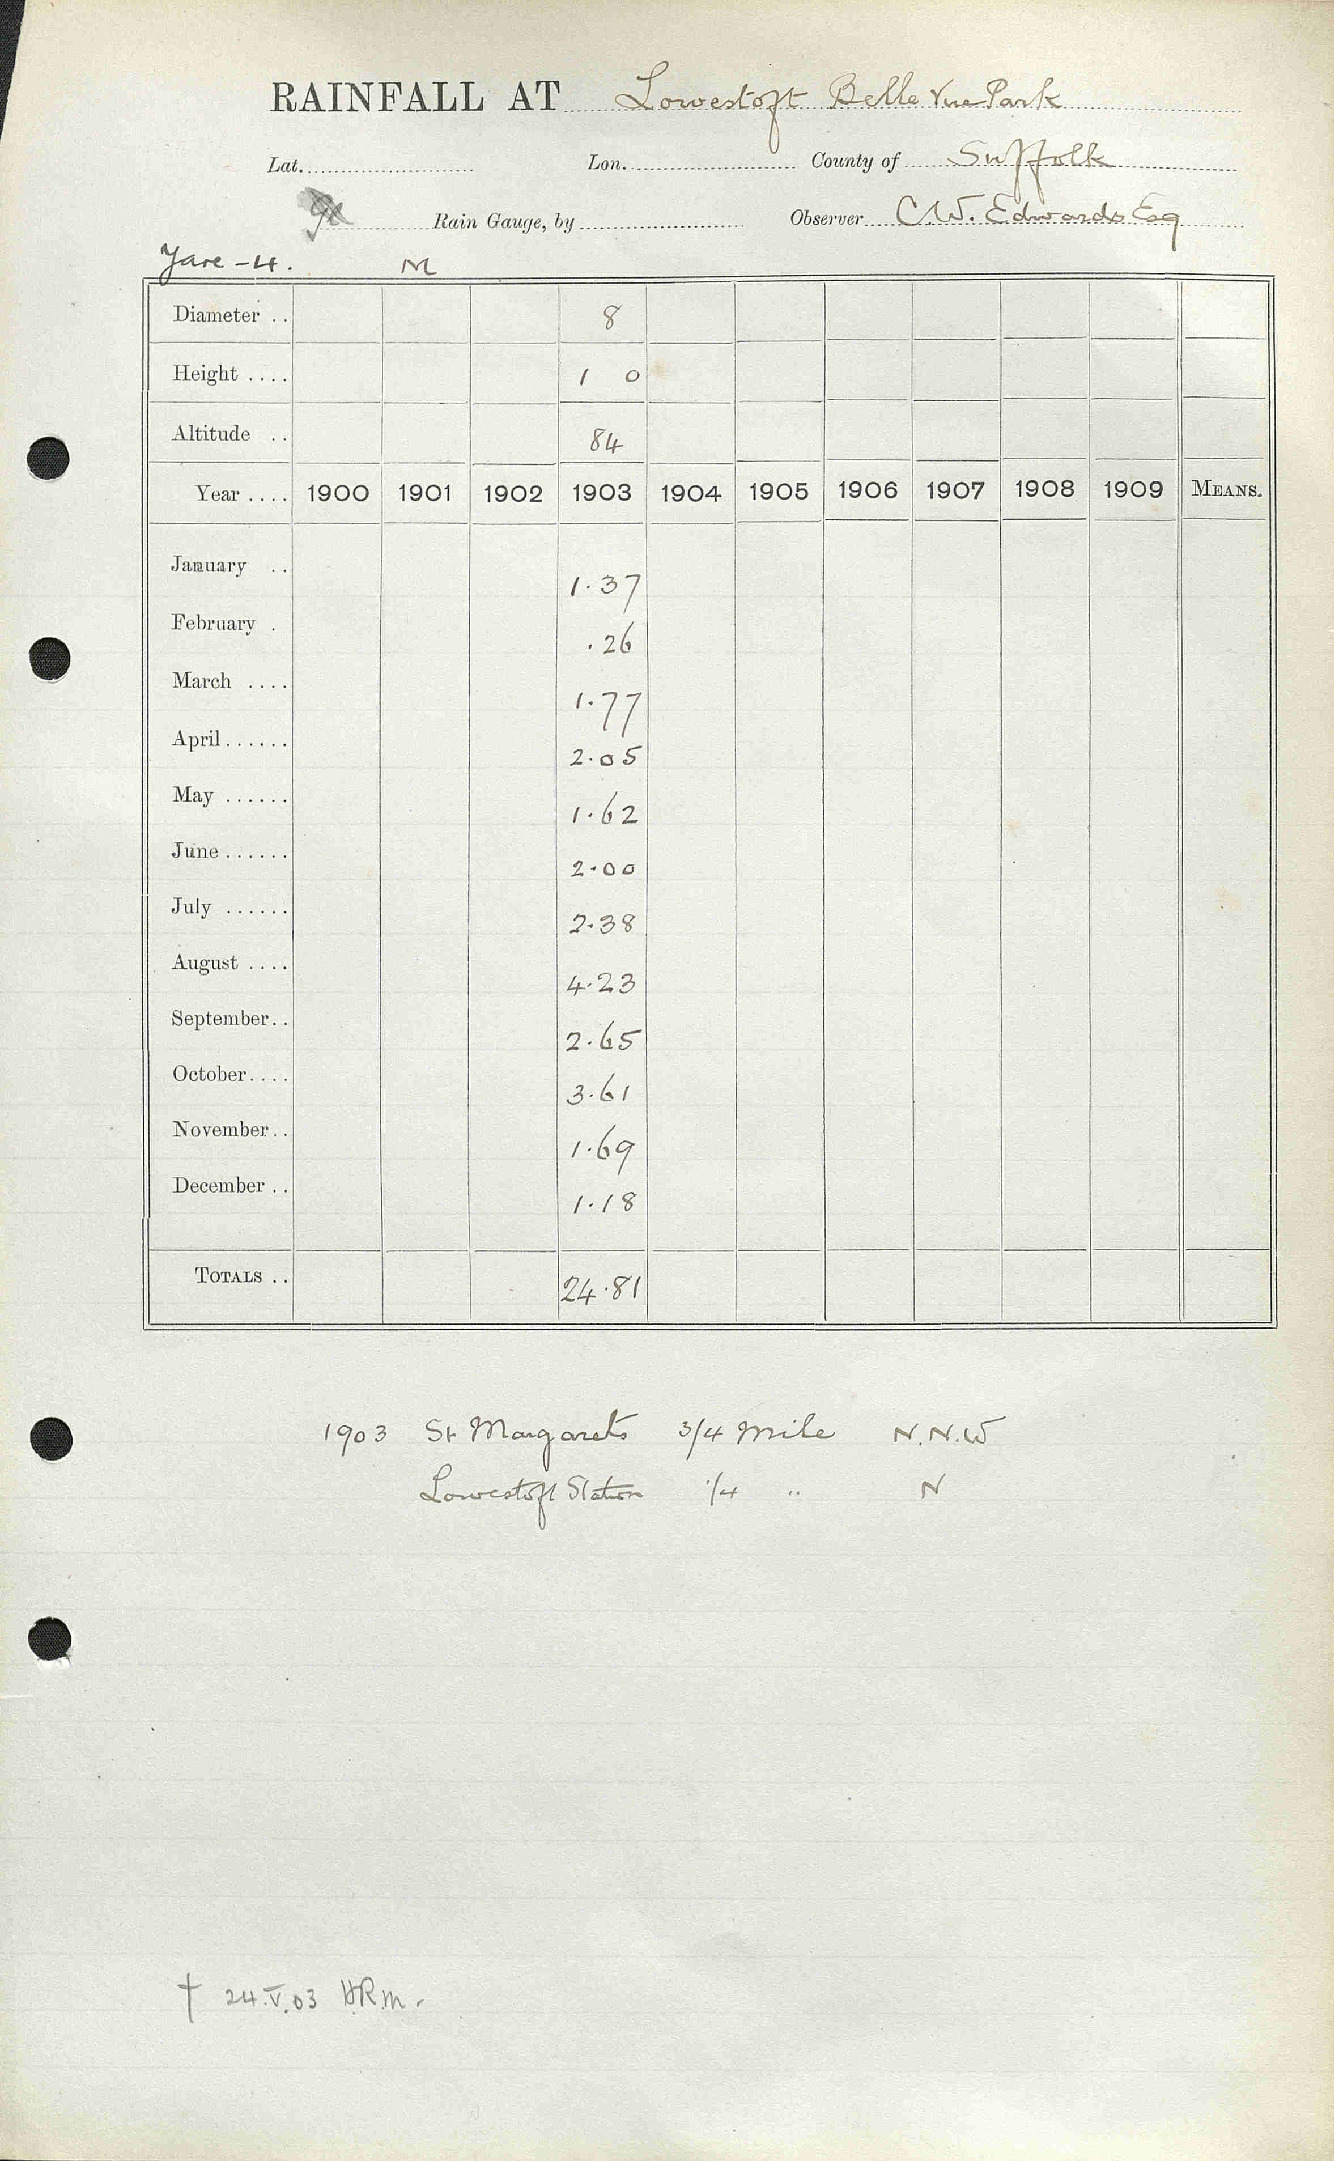 RAINFALL AT Lowestoft Belle Vue Park
Lat. Lon. County of Suffolk
Rain Gauge, by Observer C.W. Edwards Esq
Yare - 4. M
Diameter .. 8
Height .... 1 0
Altitude .. 84
Year .... 1900 1901 1902 1903 1904 1905 1906 1907 1908 1909 MEANS.
January .. 1.37
February . .26
March .... 1.77
April...... 2.05
May ...... 1.62
June...... 2.00
July ...... 2.38
August .... 4.23
September.. 2.65
October.... 3.61
November.. 1.69
December .. 1.18
TOTALS .. 24.81
1903 St Margarets 3/4 Mile N.N.W
Lowestoft Station 1/4 " N
† 24.V.03 H.R.M.